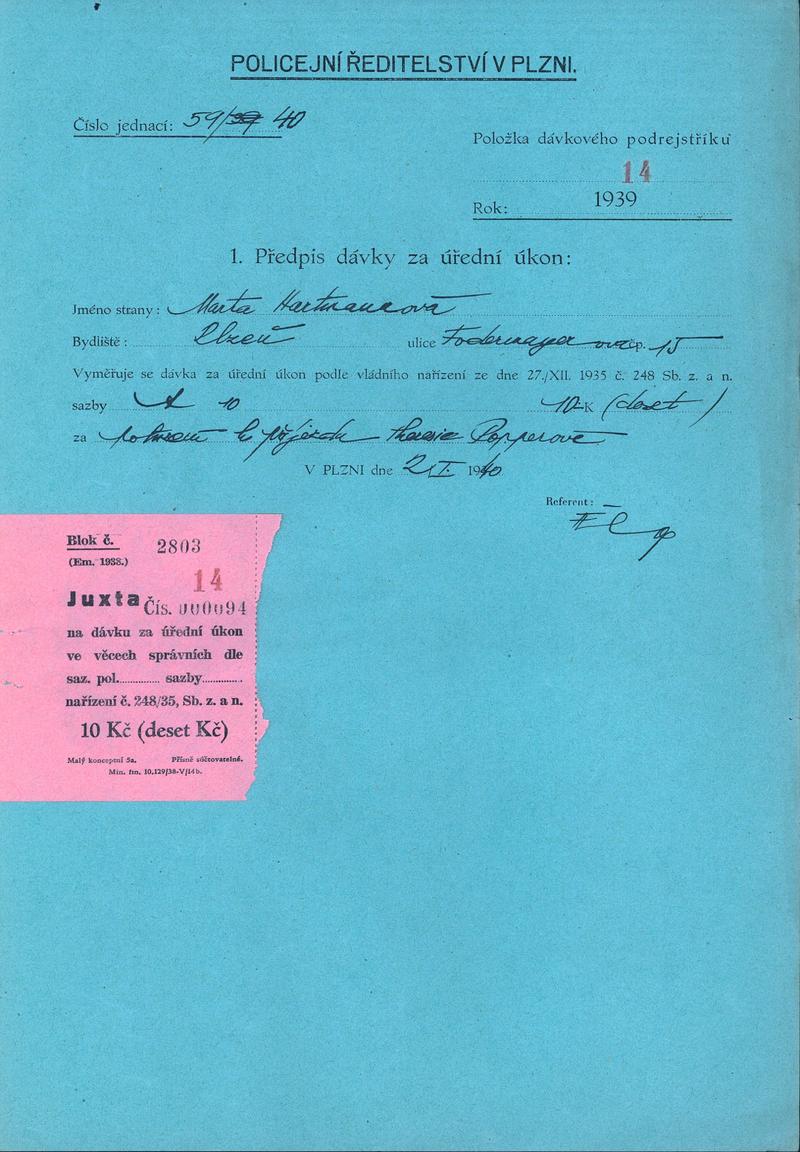 POLICEJNÍ ŘEDITELSTVÍ V PLZNI.
Číslo jednací: 59/39 40
Položka dávkového podrejstříku
14
Rok: 1939
1. Předpis dávky za úřední úkon:
Jméno strany: Marta Hartmanová
Bydliště: Plzeň ulice Fodermayerova čp. 15
Vyměřuje se dávka za úřední úkon podle vládního nařízení ze dne 27./XII. 1935 č. 248 Sb. z. a n.
sazby A 10 10 K (deset)
za k příjezdu Theresie Popperové
V PLZNI dne 2/I. 1940
Referent:
Blok č. 2803
(Em. 1938.)
14
Juxta Čís. 000094
na dávku za úřední úkon
ve věcech správních dle
saz. pol. sazby
nařízení č. 248/35, Sb. z. a n.
10 Kč (deset Kč)
Malý konceptní 5a. Přísně súčtovatelné.
Min. fin. 10.129/38-V/14b.